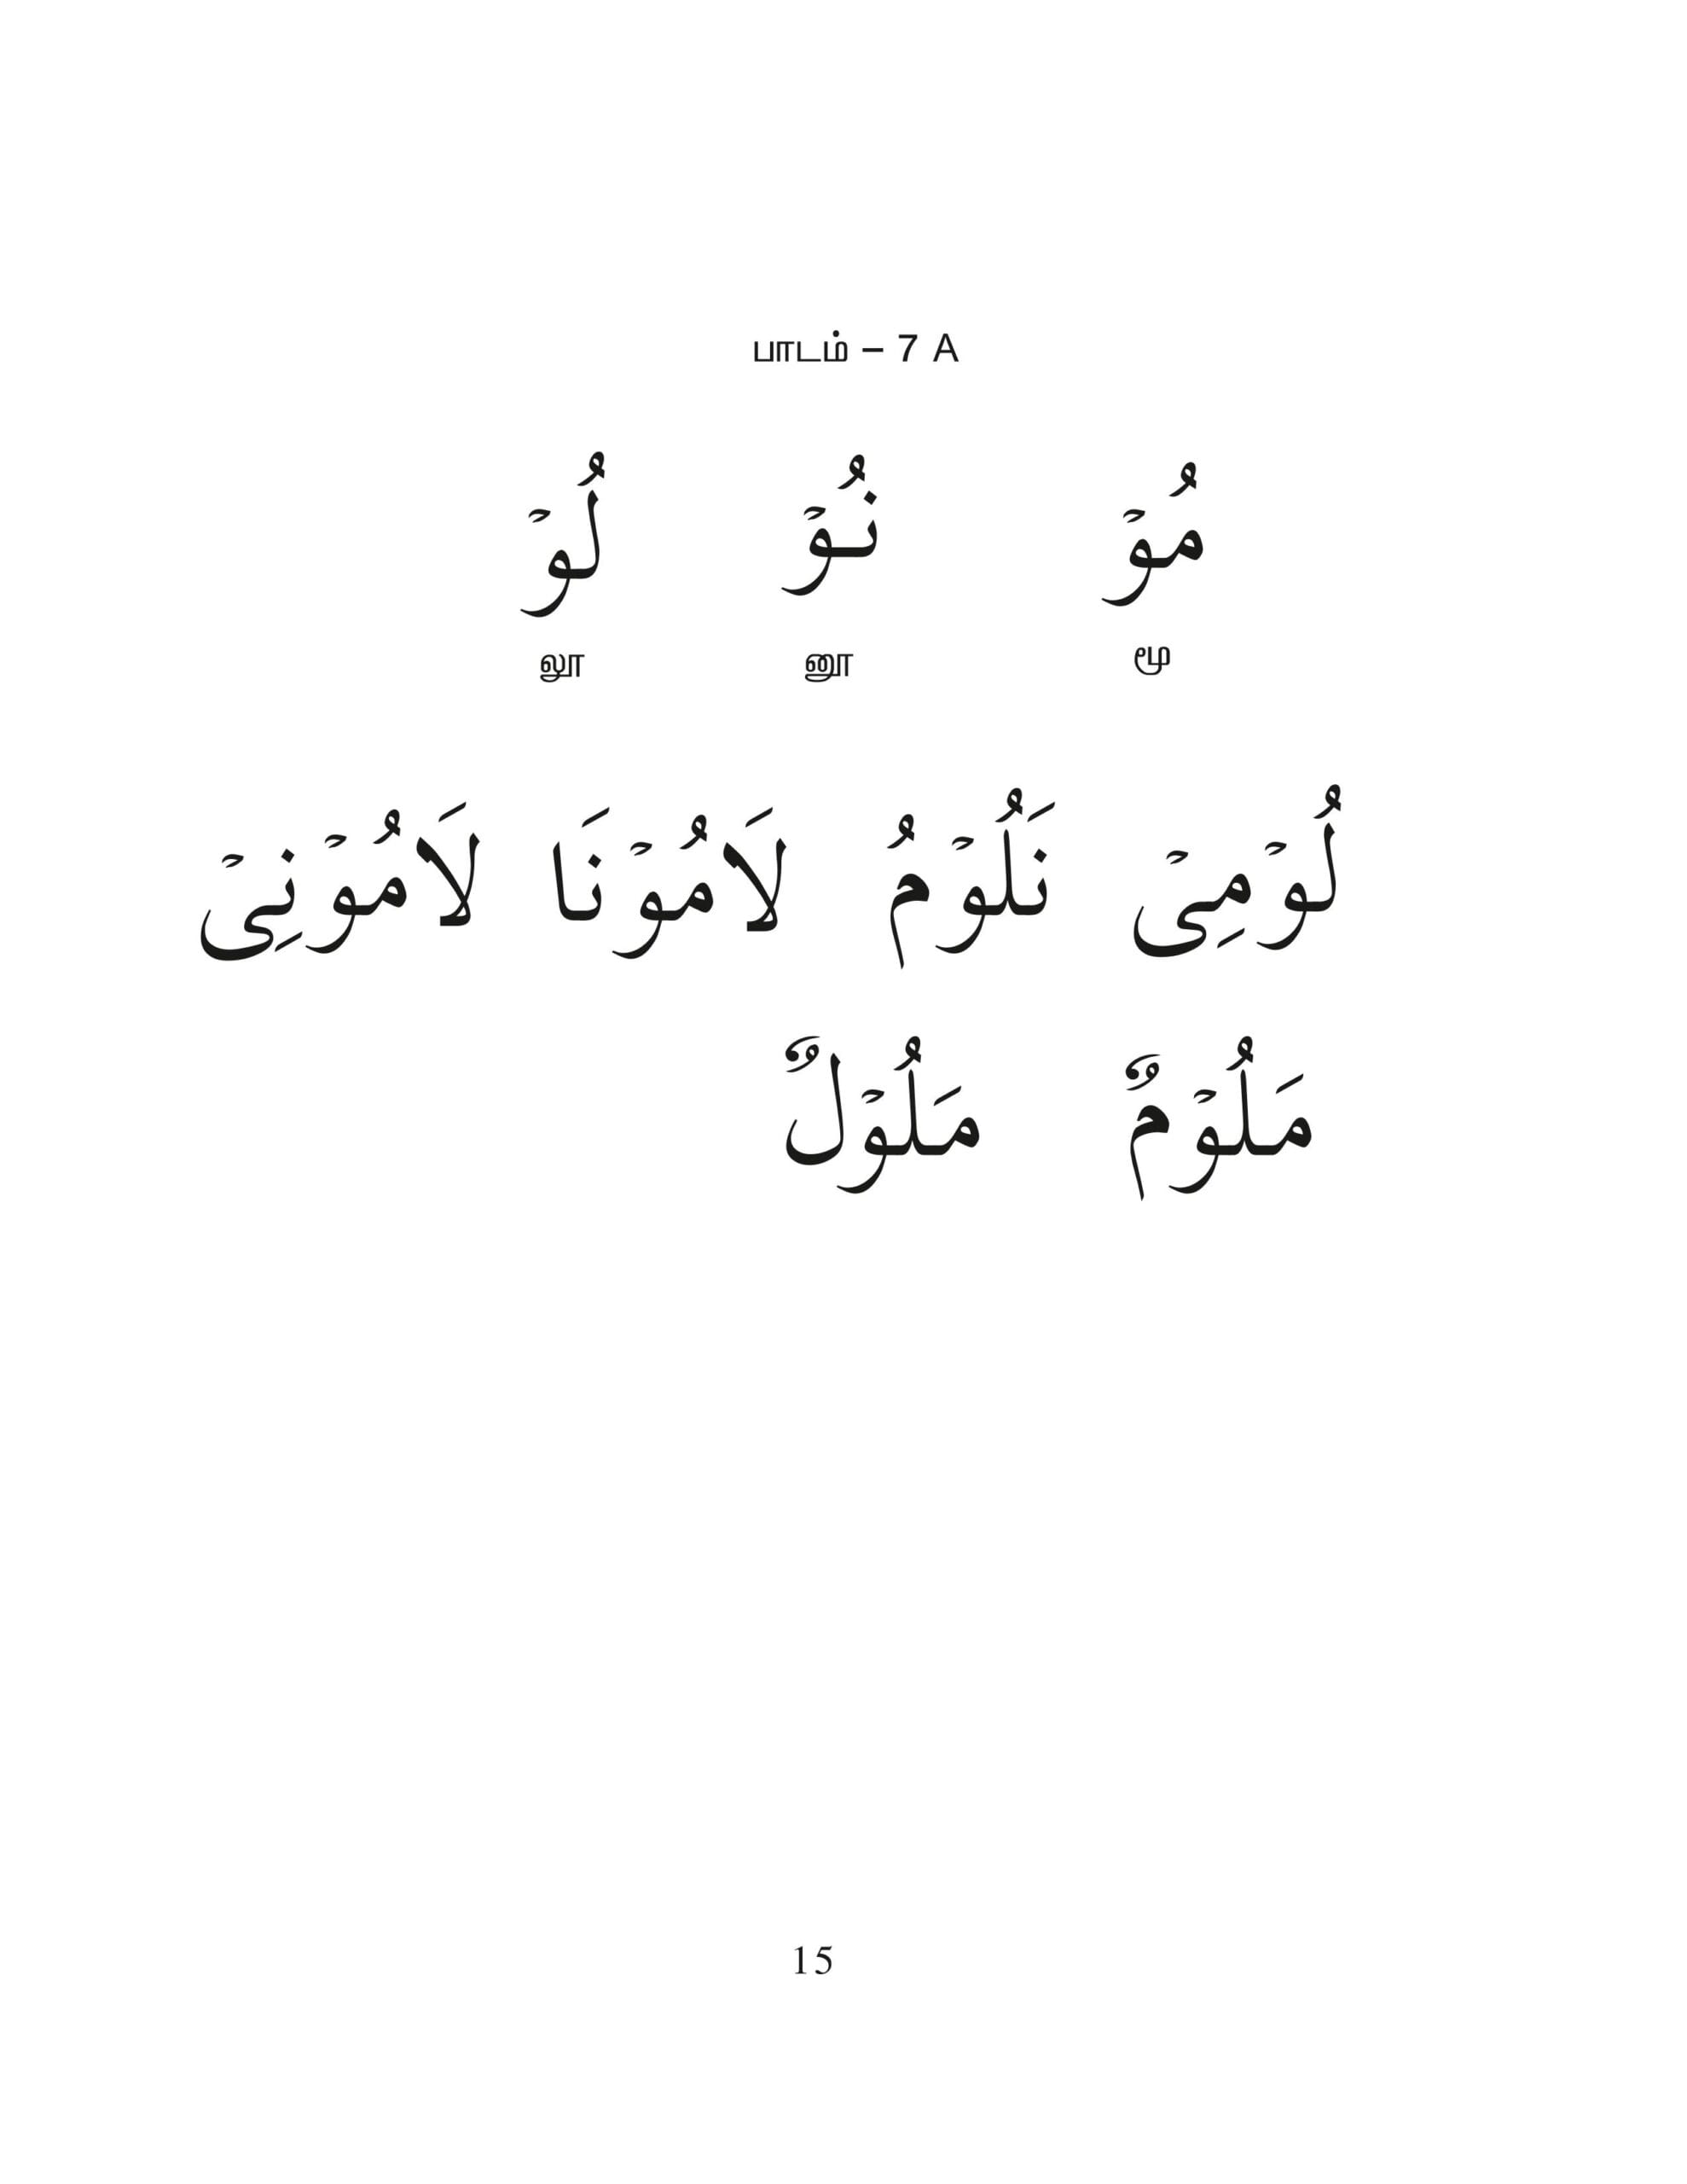 பாடம் – 7 A
مُوْ نُوْ لُوْ
மூ னூ லூ
لُوْمِيْ نَلُوْمُ لَامُوْنَا لَامُوْنِيْ
مَلُوْمٌ مَلُوْلٌ
15